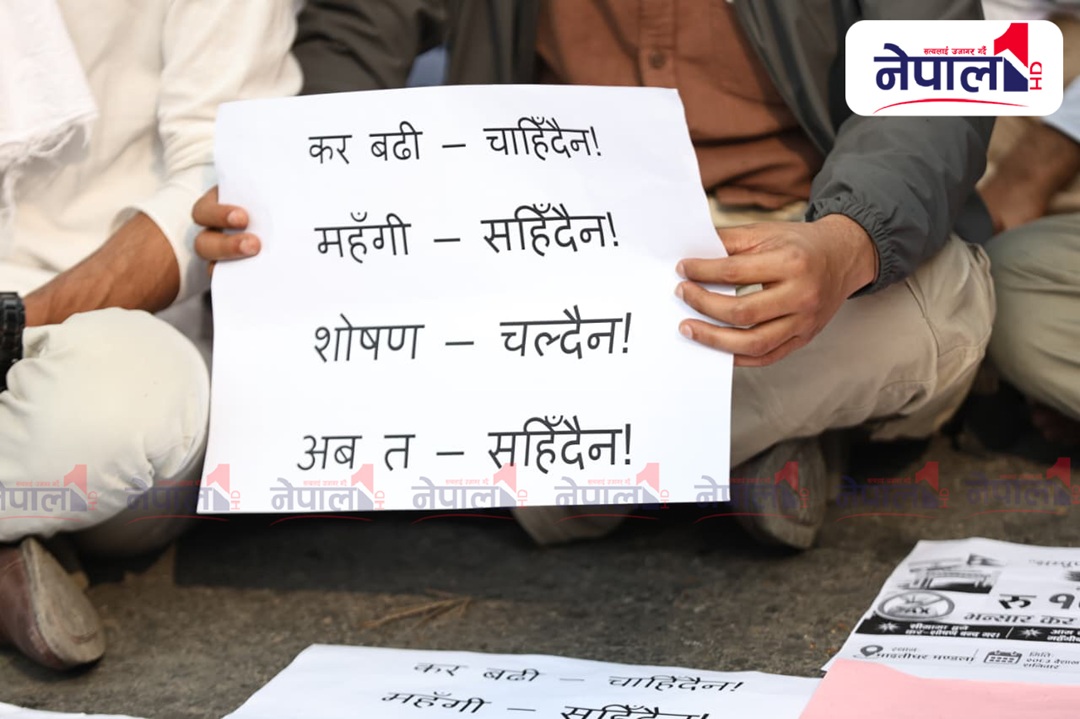 सत्यलाई उजागर गर्दै
नेपाल 1 HD
कर बढी – चाहिँदैन!
महँगी – सहिँदैन!
शोषण – चल्दैन!
अब त – सहिँदैन!
नेपाल 1 HD नेपाल 1 HD नेपाल 1 HD नेपाल 1 HD नेपाल 1 HD नेपाल 1 HD नेपाल 1 HD
रु
TAX
भन्सार कर
स्थान
माइतीघर मण्डला
मिति:
शनिबार
कर बढी – चाहिँदैन!
महँगी – सहिँदैन!